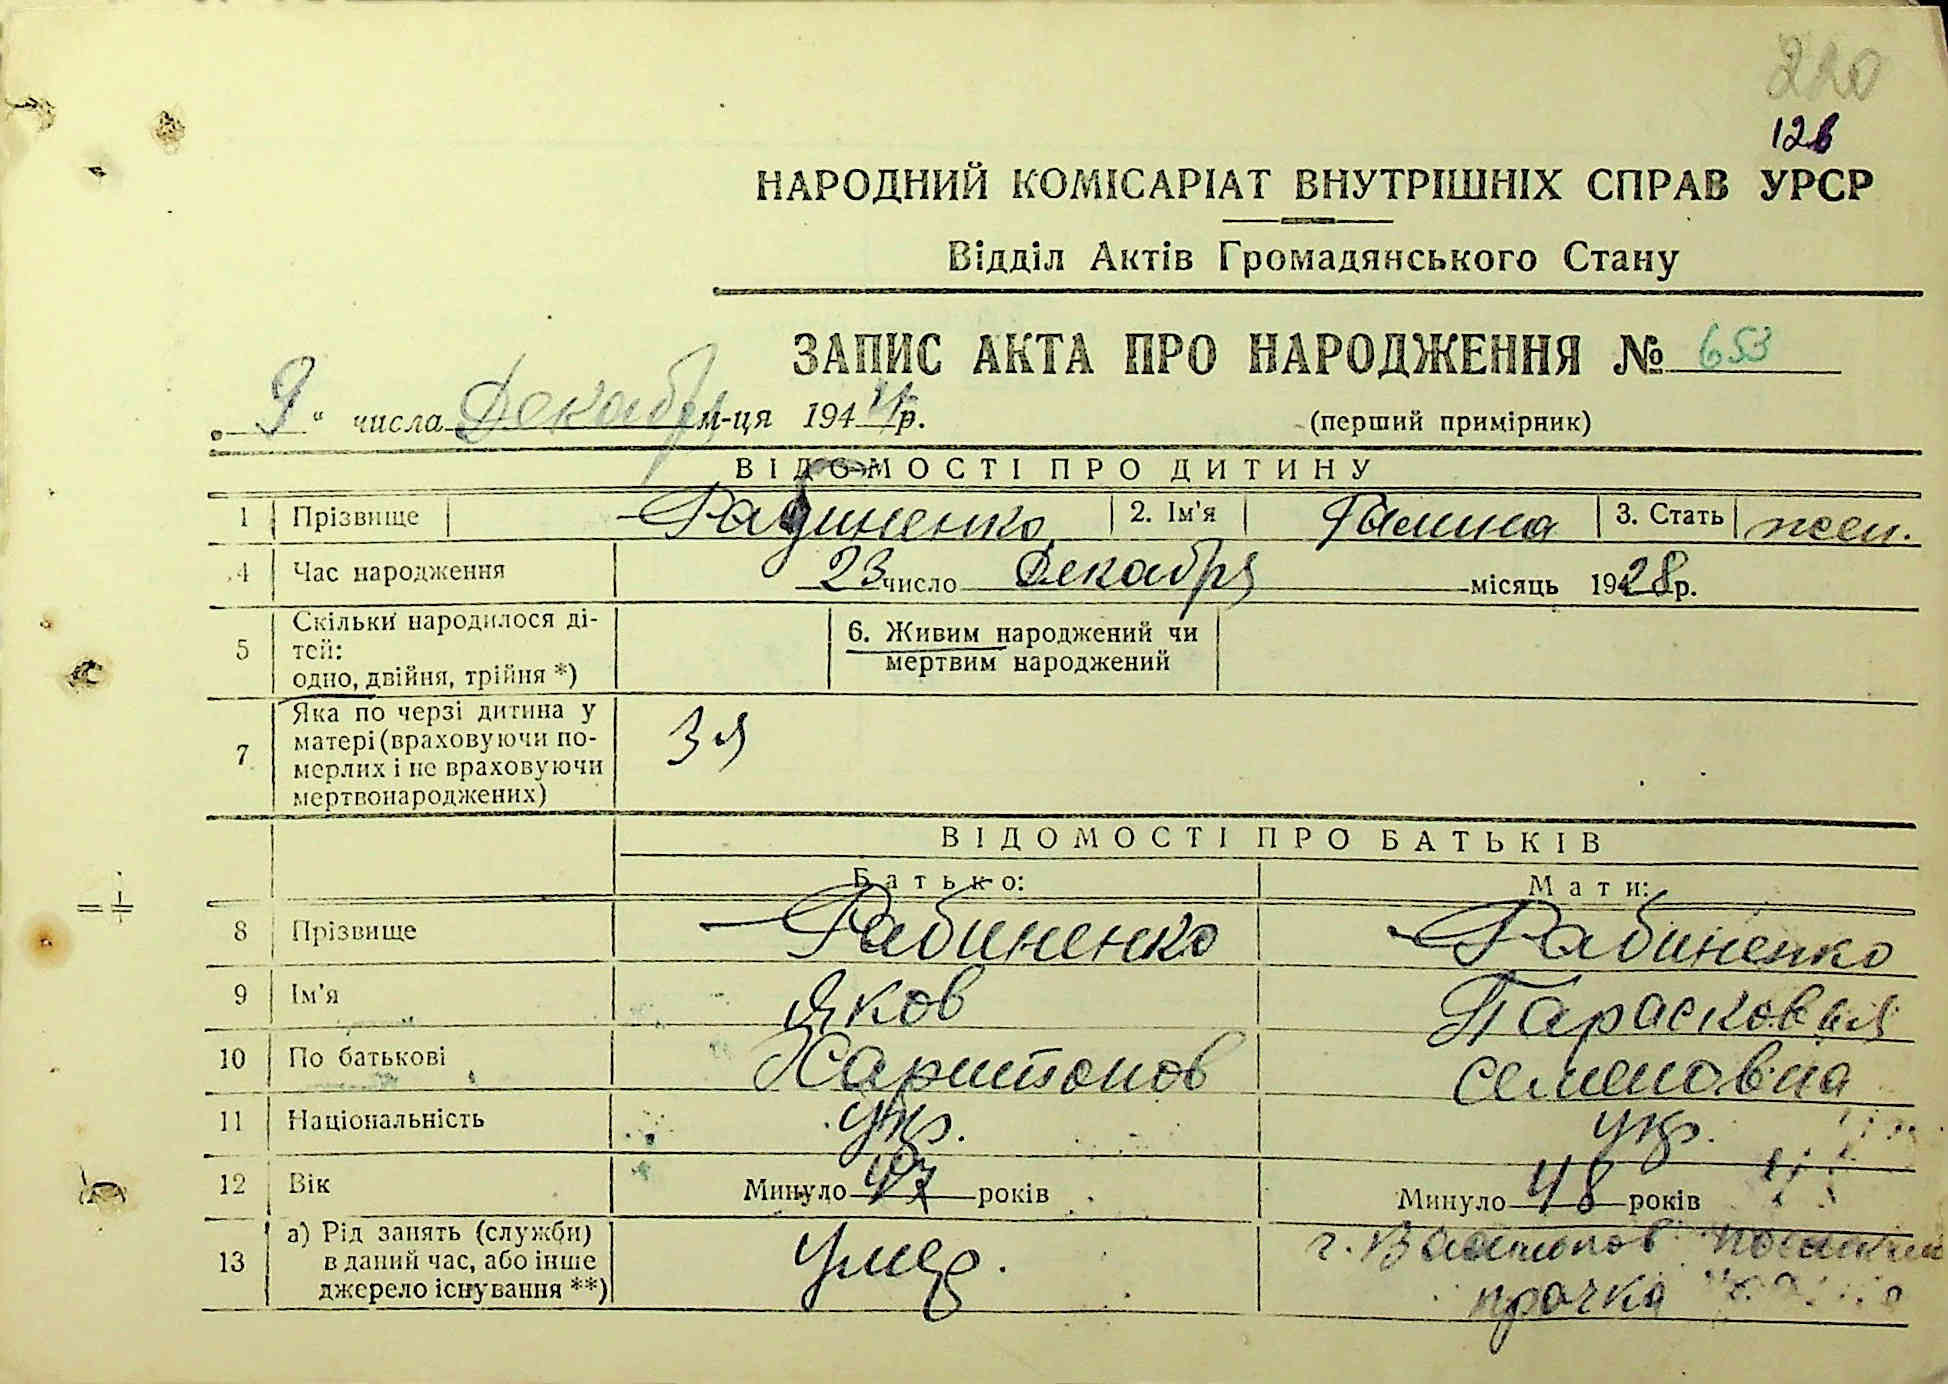 220
126
НАРОДНИЙ КОМІСАРІАТ ВНУТРІШНІХ СПРАВ УРСР
Відділ Актів Громадянського Стану
ЗАПИС АКТА ПРО НАРОДЖЕННЯ № 653
„ 9 “ числа Декабря м-ця 1944 р. (перший примірник)
ВІДОМОСТІ ПРО ДИТИНУ
1 Прізвище Рабиненко 2. Ім'я Галина 3. Стать жен.
4 Час народження 23 число Декабря місяць 1928 р.
5 Скільки народилося ді-
тей:
одно, двійня, трійня *)
6. Живим народжений чи
мертвим народжений
7 Яка по черзі дитина у
матері (враховуючи по-
мерлих і не враховуючи
мертвонароджених)
3я
ВІДОМОСТІ ПРО БАТЬКІВ
Батько: Мати:
8 Прізвище Рабиненко Рабиненко
9 Ім'я Яков Парасковия
10 По батькові Харитонов Семеновна
11 Національність укр. укр.
12 Вік Минуло 47 років Минуло 48 років
13 а) Рід занять (служби)
в даний час, або інше
джерело існування **)
умер.
прачка